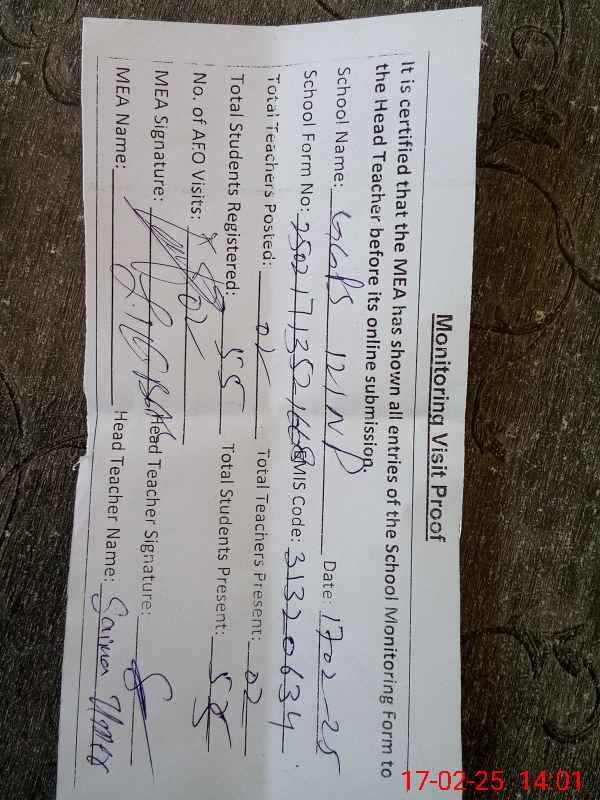 Monitoring Visit Proof
It is certified that the MEA has shown all entries of the School Monitoring Form to
the Head Teacher before its online submission.
School Name: GGPS 121NP Date: 17-02-25
School Form No: EMIS Code: 31320634
Total Teachers Posted: 02 Total Teachers Present: 02
Total Students Registered: 55 Total Students Present: 55
No. of AEO Visits: 02
MEA Signature: Head Teacher Signature:
MEA Name: Head Teacher Name: Saima
17-02-25 14:01